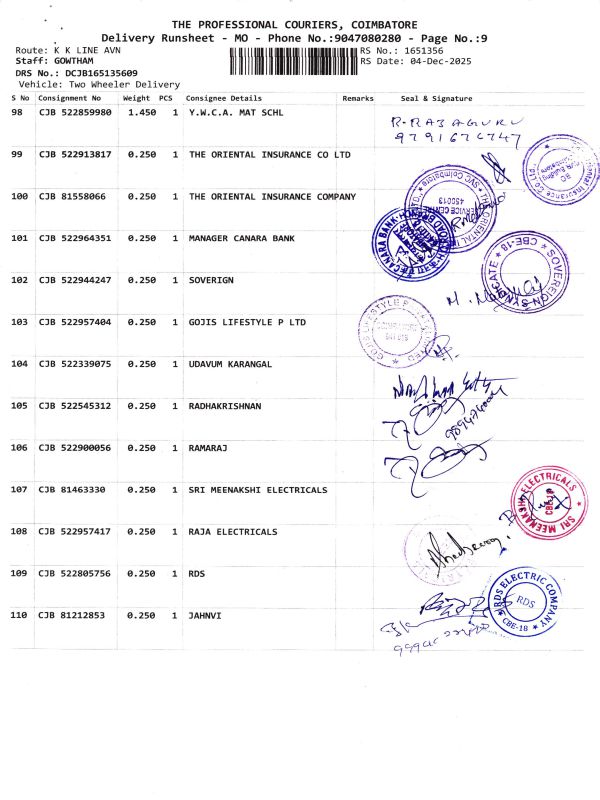 THE PROFESSIONAL COURIERS, COIMBATORE
Delivery Runsheet - MO - Phone No.:9047080280 - Page No.:9
Route: K K LINE AVN
RS No.: 1651356
Staff: GOWTHAM
RS Date: 04-Dec-2025
DRS No.: DCJB165135609
Vehicle: Two Wheeler Delivery
S No Consignment No Weight PCS Consignee Details Remarks Seal & Signature
98 CJB 522859980 1.450 1 Y.W.C.A. MAT SCHL
R-RAJAGURU
9791676747
99 CJB 522913817 0.250 1 THE ORIENTAL INSURANCE CO LTD
100 CJB 81558066 0.250 1 THE ORIENTAL INSURANCE COMPANY
SVC Coimbatore
SERVICE CENTRE
450013
101 CJB 522964351 0.250 1 MANAGER CANARA BANK
CANARA BANK
102 CJB 522944247 0.250 1 SOVERIGN
SOVEREIGN SYNDICATE
CBE-18
103 CJB 522957404 0.250 1 GOJIS LIFESTYLE P LTD
GOJIS LIFESTYLE P
104 CJB 522339075 0.250 1 UDAVUM KARANGAL
105 CJB 522545312 0.250 1 RADHAKRISHNAN
106 CJB 522900056 0.250 1 RAMARAJ
107 CJB 81463330 0.250 1 SRI MEENAKSHI ELECTRICALS
SRI MEENAKSHI ELECTRICALS
CBE-18
108 CJB 522957417 0.250 1 RAJA ELECTRICALS
109 CJB 522805756 0.250 1 RDS
RDS ELECTRIC COMPANY
RDS
CBE-18
110 CJB 81212853 0.250 1 JAHNVI